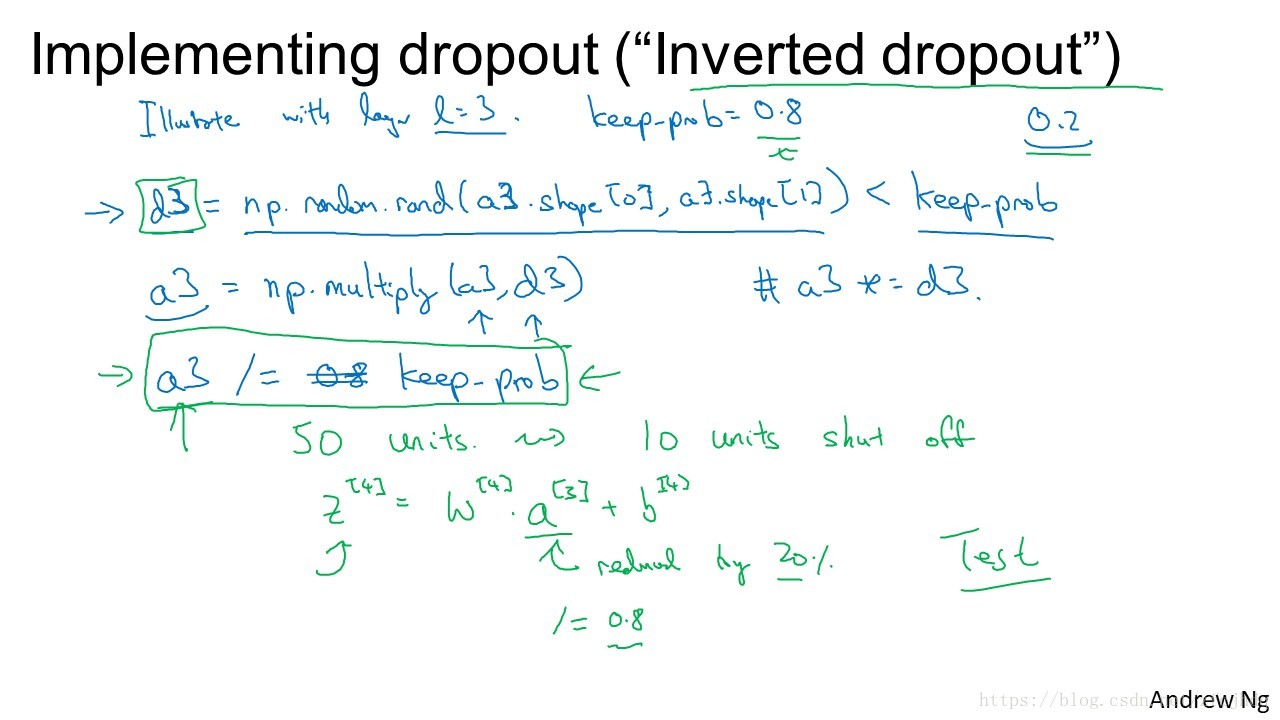 Implementing dropout (“Inverted dropout”)
Illustrate with layer l=3. keep-prob= 0.8 0.2
x
→ d3 = np.random.rand(a3.shape[0], a3.shape[1]) < keep-prob
a3 = np.multiply(a3, d3) # a3 *= d3.
↑ ↑
→ a3 /= 0.8 keep-prob ←
↑ 50 units. ⇝ 10 units shut off
z[4] = W[4] . a[3] + b[4]
reduced by 20% Test
/= 0.8
Andrew Ng